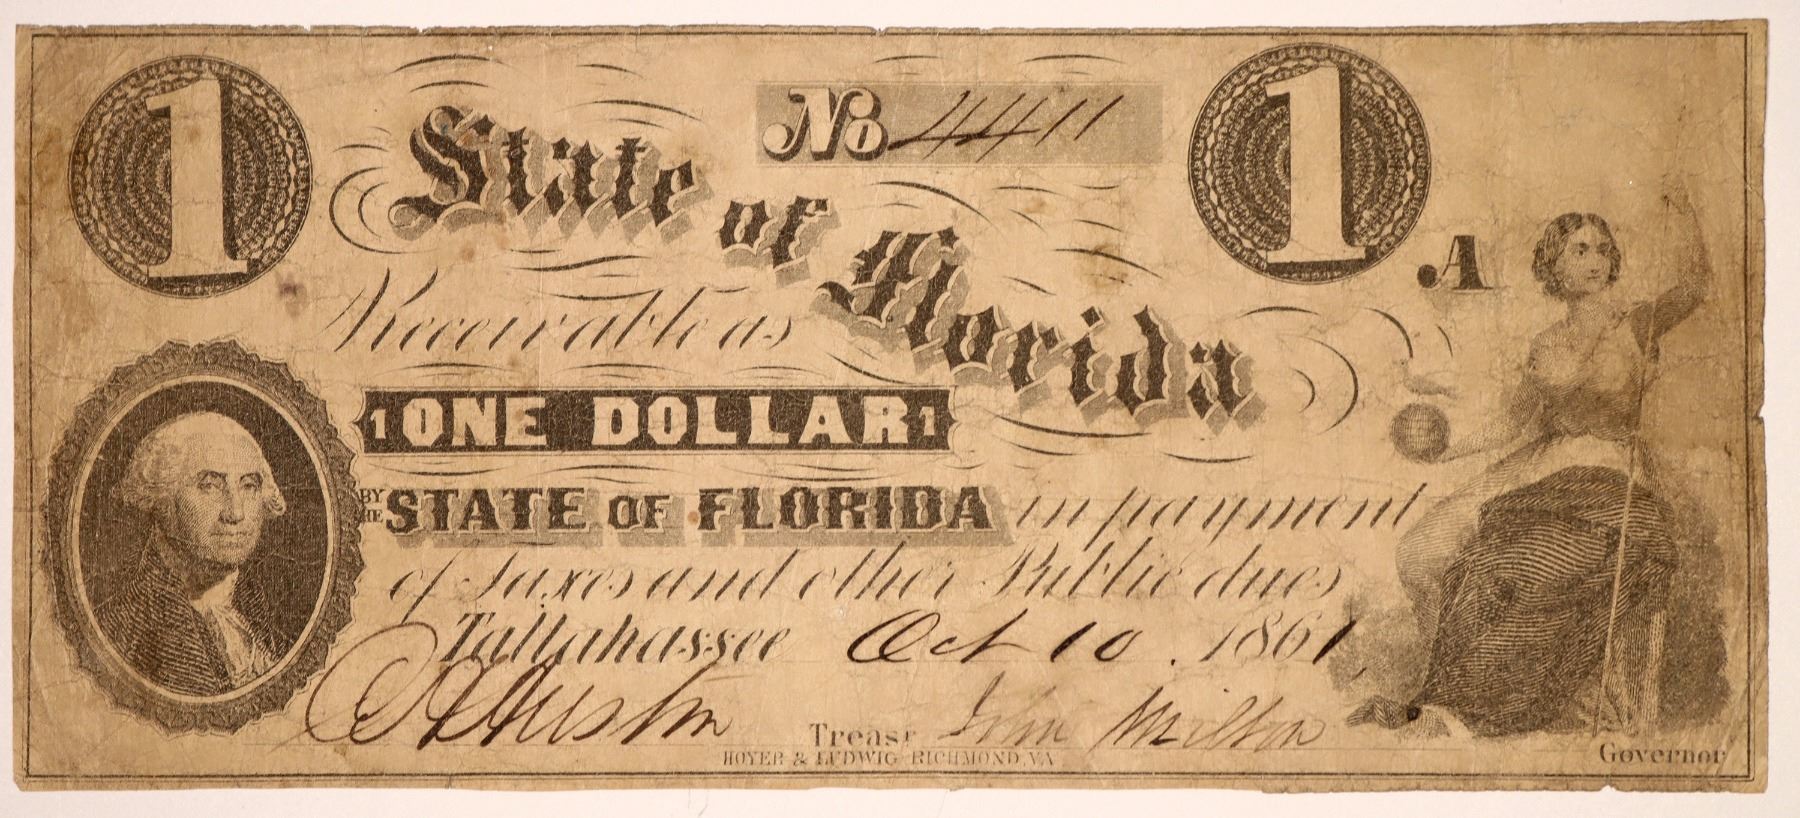 1
No 4411
1
State of Florida
A
Receivable as
1 ONE DOLLAR 1
BY THE STATE OF FLORIDA in payment
of Taxes and other Public dues
Tallahassee Oct 10. 1861,
C H Austin Treasr John Milton Governor
HOYER & LUDWIG RICHMOND, VA